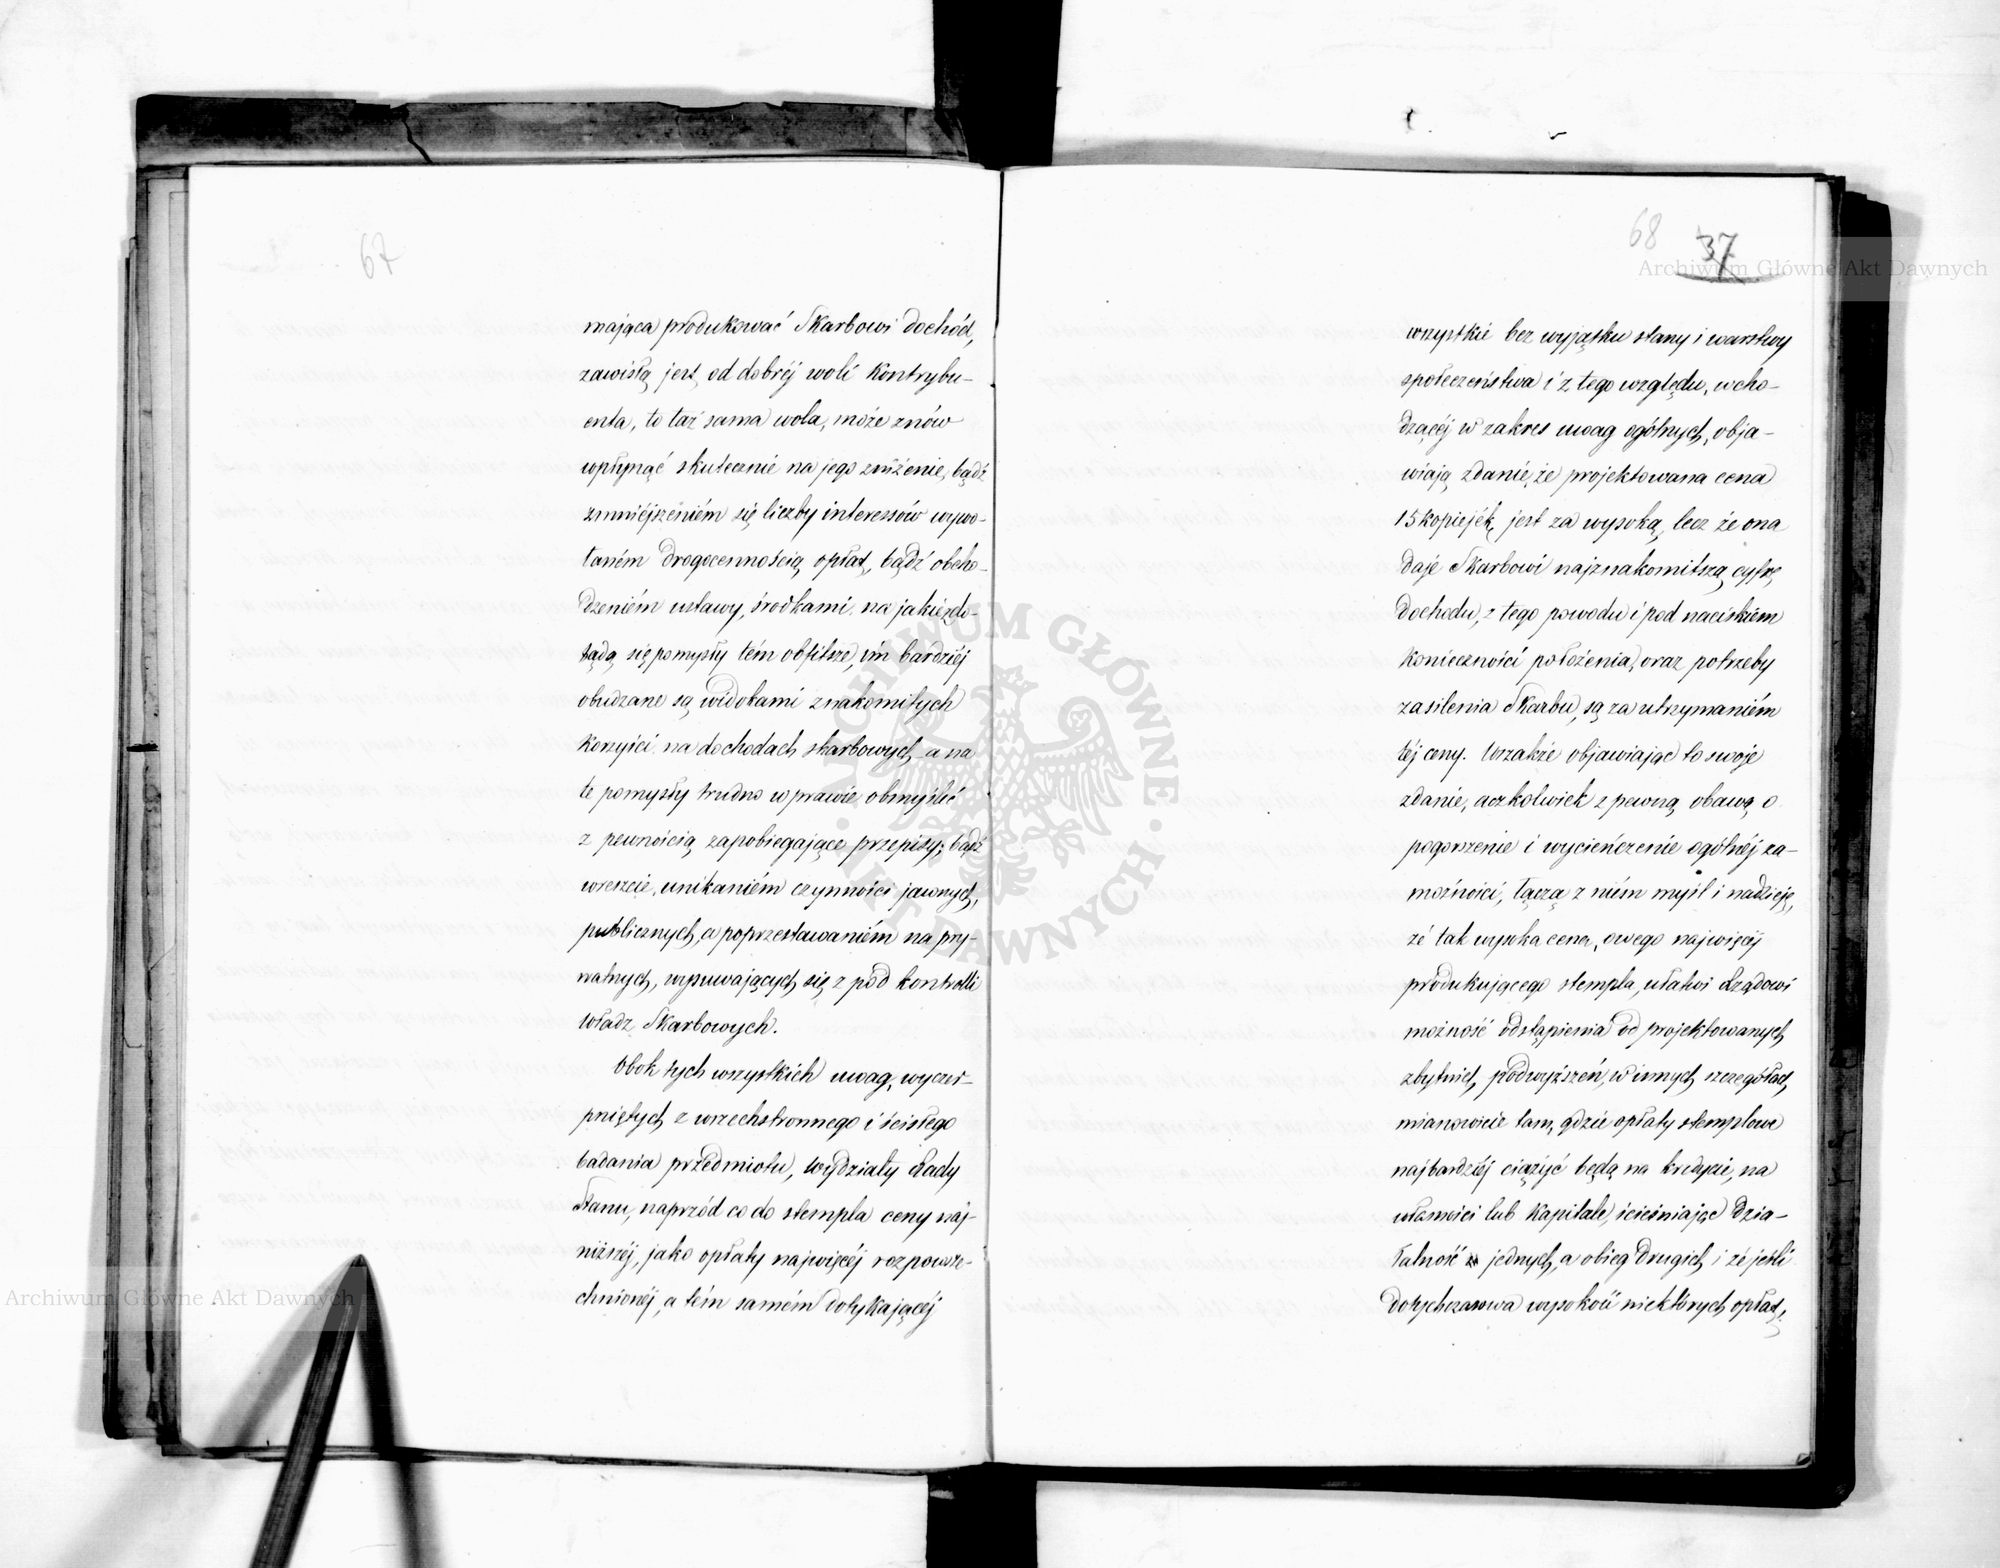 67
mająca produkować Skarbowi dochód,
zawisłą jest od dobréj woli Kontrybu-
enta, to taż sama wola, może znów
wpłynąć skutecznie na jego zniżenie, bądź
zmniejszeniém się liczby interessów wywo-
łaném drogocennością opłat, bądź obcho-
dzeniém ustawy, środkami na jakie zdo-
będą się pomysły tém obfitsze, im bardziéj
obudzane są widokami znakomitych
Korzyści na dochodach skarbowych, a na
te pomysły trudno w prawie obmyśleć
z pewnością zapobiegające przepisy; bądź
wreszcie, unikaniém czynności jawnych,
publicznych, a poprzestawaniém na pry-
watnych, wysuwających się z pod kontrolli
władz Skarbowych.
Obok tych wszystkich uwag, wyczer-
pniętych z wszechstronnego i ścisłego
badania przedmiotu, wydziały Rady
Stanu, naprzód co do stempla ceny naj-
niższéj, jako opłaty najwięcéj rozpowsze-
chnionéj, a tém samém dotykającéj
68 37
wszystkie bez wyjątku stany i warstwy
społeczeństwa i z tego względu, wcho-
dzącéj w zakres uwag ogólnych, obja-
wiają zdanie, że projektowana cena
15 kopiejek, jest za wysoką, lecz że ona
daje Skarbowi najznakomitszą cyfrę
dochodu, z tego powodu i pod naciskiem
Konieczności położenia, oraz potrzeby
zasilenia Skarbu, są za utrzymaniém
téj ceny. Wszakże objawiając to swoje
zdanie, aczkolwiek z pewną obawą o
pogorszenie i wycieńczenie ogólnéj za-
możności, łączą z niém myśl i nadzieję,
że tak wysoka cena, owego najwięcéj
produkującego stempla, ułatwi Rządowi
możność odstąpienia od projektowanych
zbytnich podwyższeń, w innych szczegółach,
mianowicie tam, gdzie opłaty stemplowe
najbardziéj ciążyć będą na kredycie, na
własności lub Kapitale, ścieśniając dzia-
łalność jednych, a obieg drugich, i że jeśli
dotychczasowa wysokość niektórych opłat,
Archiwum Główne Akt Dawnych
Archiwum Główne Akt Dawnych
ARCHIWUM GŁÓWNE AKT DAWNYCH